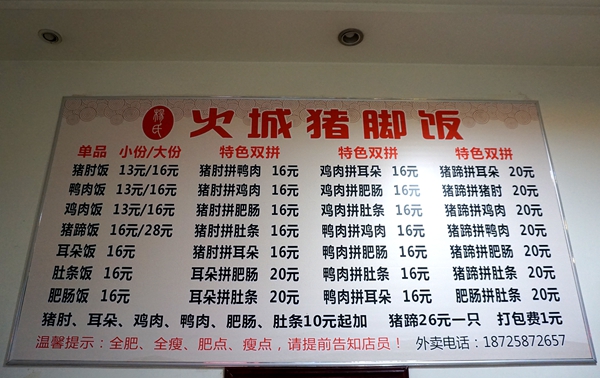 蔡氏 火城猪脚饭
单品 小份/大份 特色双拼 特色双拼 特色双拼
猪肘饭 13元/16元 猪肘拼鸭肉 16元 鸡肉拼耳朵 16元 猪蹄拼耳朵 20元
鸭肉饭 13元/16元 猪肘拼鸡肉 16元 鸡肉拼肥肠 16元 猪蹄拼猪肘 20元
鸡肉饭 13元/16元 猪肘拼肥肠 16元 鸡肉拼肚条 16元 猪蹄拼鸡肉 20元
猪蹄饭 16元/28元 猪肘拼肚条 16元 鸭肉拼鸡肉 16元 猪蹄拼鸭肉 20元
耳朵饭 16元 猪肘拼耳朵 16元 鸭肉拼肥肠 16元 猪蹄拼肥肠 20元
肚条饭 16元 耳朵拼肥肠 20元 鸭肉拼肚条 16元 猪蹄拼肚条 20元
肥肠饭 16元 耳朵拼肚条 20元 鸭肉拼耳朵 16元 肥肠拼肚条 20元
猪肘、耳朵、鸡肉、鸭肉、肥肠、肚条10元起加 猪蹄26元一只 打包费1元
温馨提示：全肥、全瘦、肥点、瘦点，请提前告知店员！ 外卖电话：18725872657